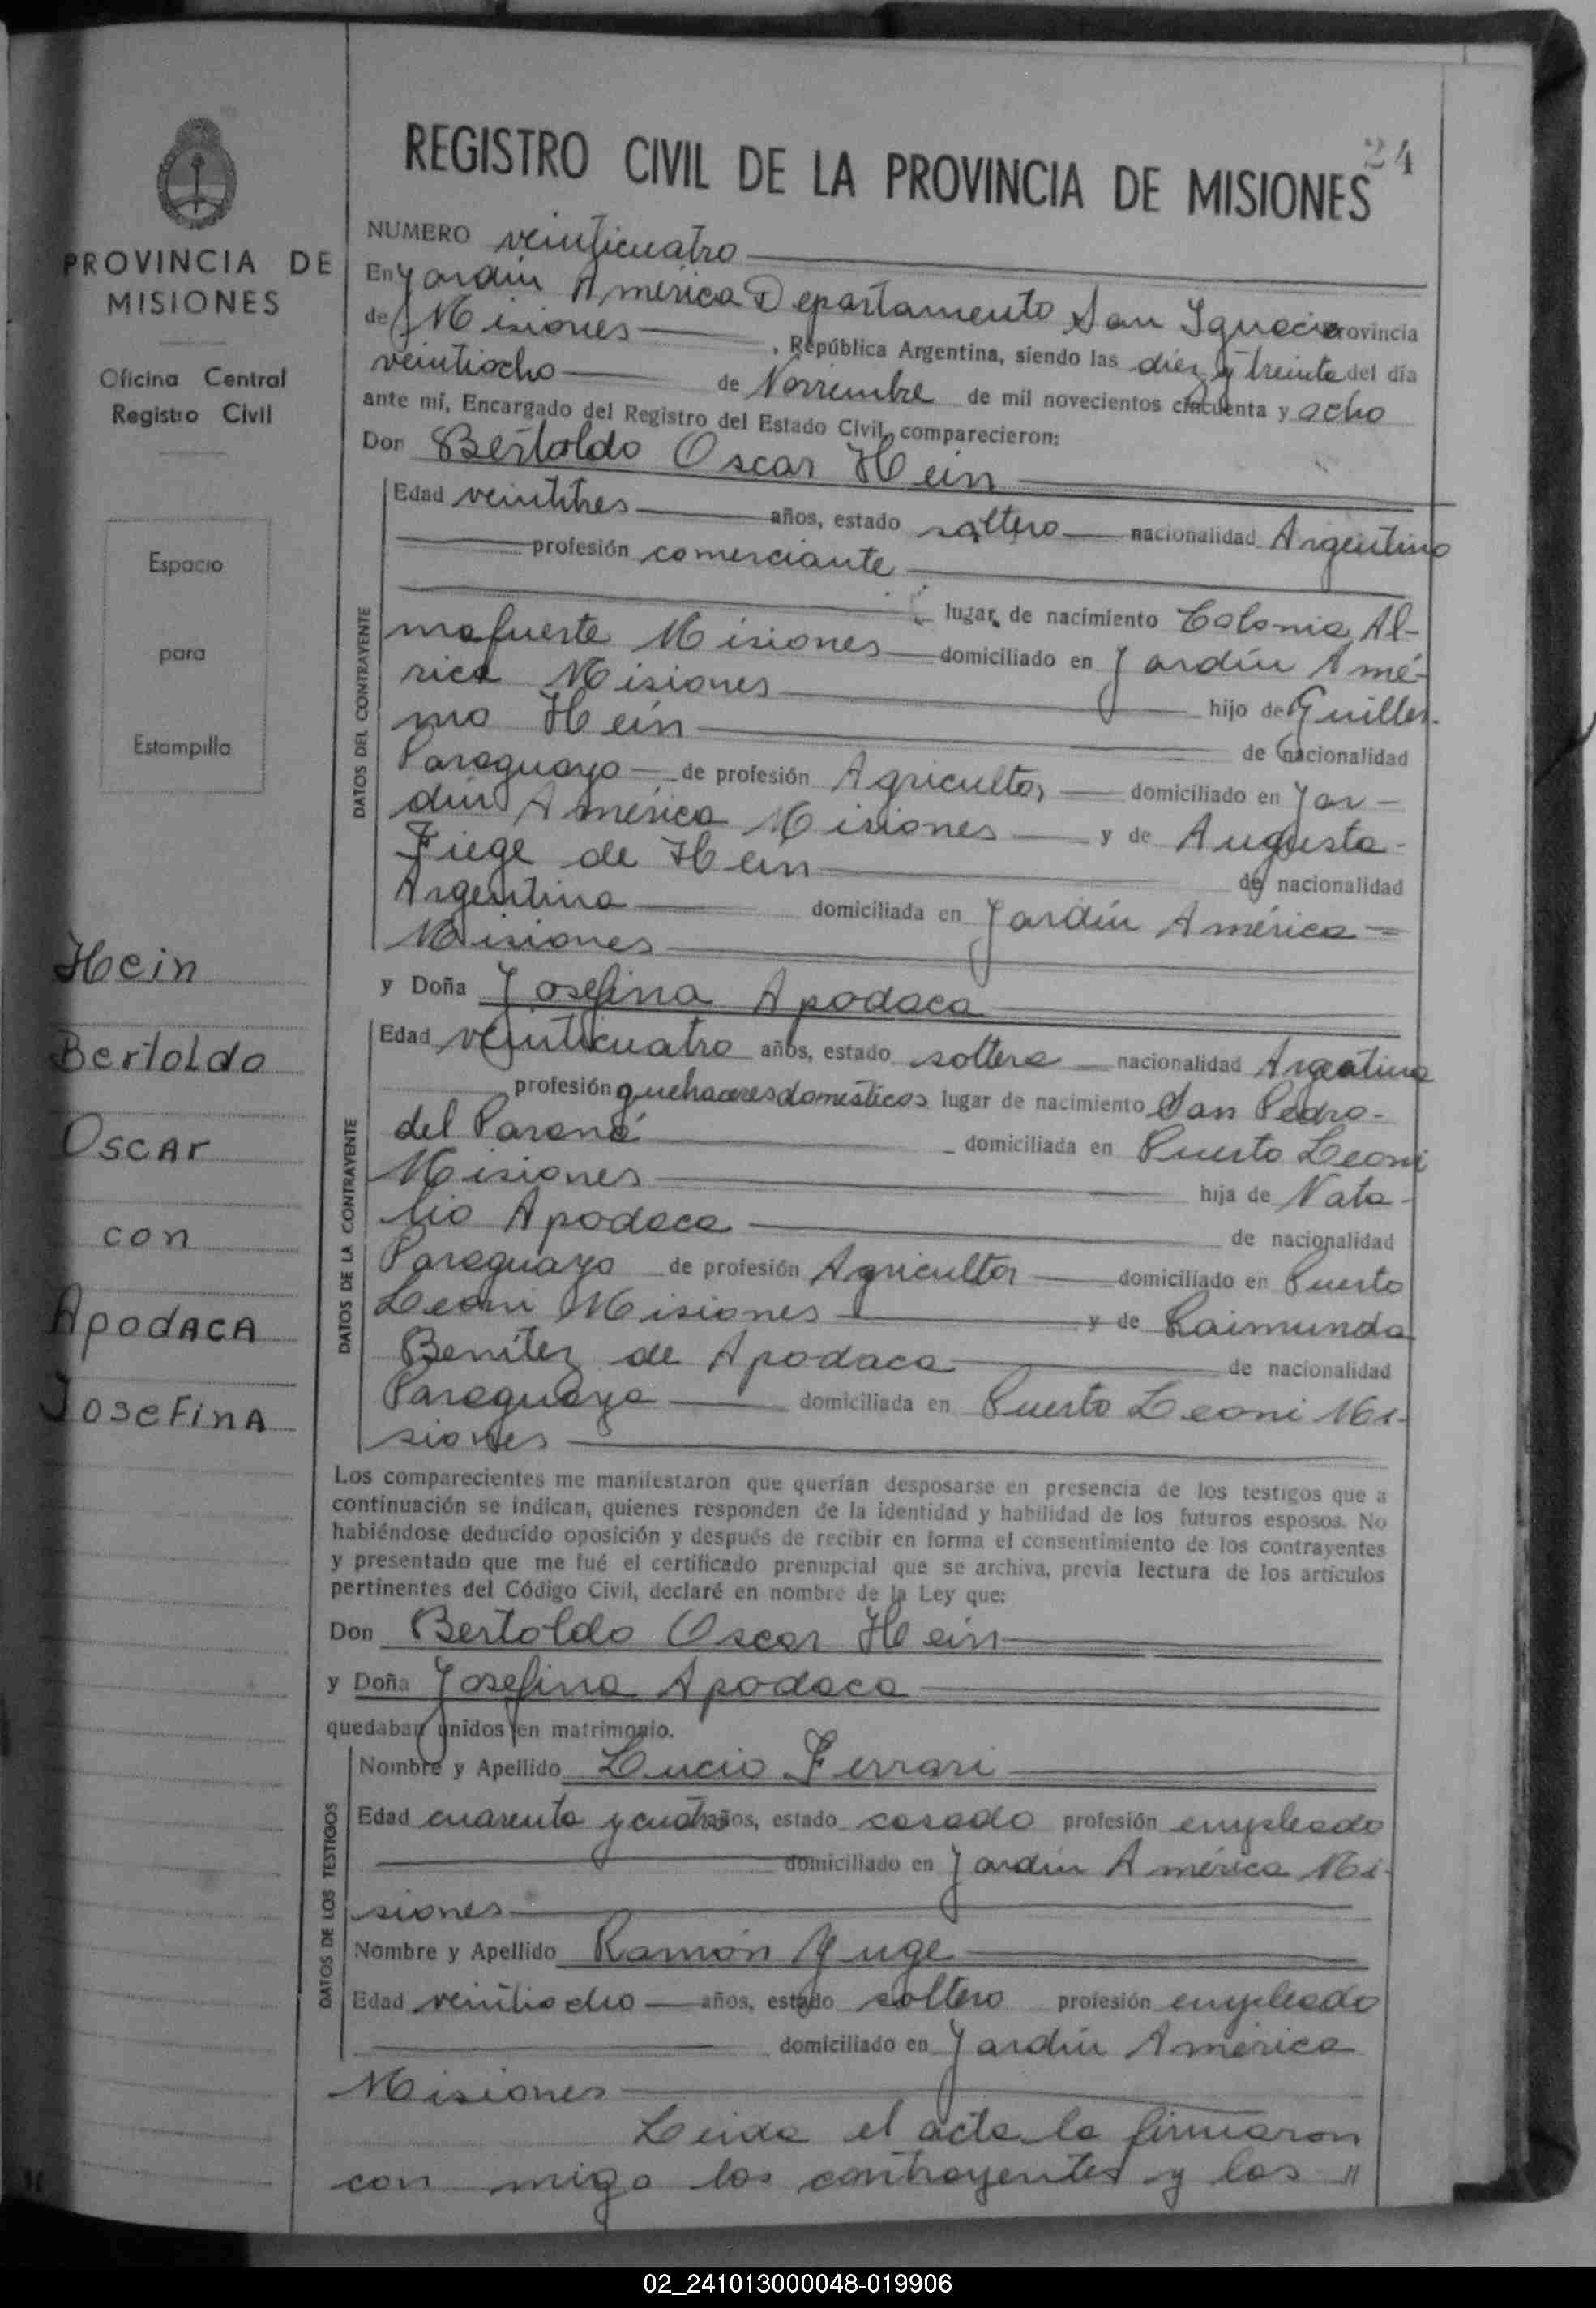 24
REGISTRO CIVIL DE LA PROVINCIA DE MISIONES
PROVINCIA DE
MISIONES
Oficina Central
Registro Civil
Espacio
para
Estampilla
Hein
Bertoldo
Oscar
con
Apodaca
Josefina
NUMERO veinticuatro
En Jardín América Departamento San Ignacio provincia
de Misiones , República Argentina, siendo las diez y treinta del día
veintiocho de Noviembre de mil novecientos cincuenta y ocho
ante mí, Encargado del Registro del Estado Civil, comparecieron:
Don Bertoldo Oscar Hein
DATOS DEL CONTRAYENTE
Edad veintitres años, estado soltero nacionalidad Argentino
profesión comerciante
lugar de nacimiento Colonia Al-
mafuerte Misiones domiciliado en Jardín Amé-
rica Misiones hijo de Guiller-
mo Hein de nacionalidad
Paraguayo de profesión Agricultor domiciliado en Jar-
dín América Misiones y de Augusta
Fiege de Hein de nacionalidad
Argentina domiciliada en Jardín América
Misiones
y Doña Josefina Apodaca
DATOS DE LA CONTRAYENTE
Edad veinticuatro años, estado soltera nacionalidad Argentina
profesión quehaceres domésticos lugar de nacimiento San Pedro
del Paraná domiciliada en Puerto Leoni
Misiones hija de Nata-
lio Apodaca de nacionalidad
Paraguayo de profesión Agricultor domiciliado en Puerto
Leoni Misiones y de Raimunda
Benítez de Apodaca de nacionalidad
Paraguaya domiciliada en Puerto Leoni Mi-
siones
Los comparecientes me manifestaron que querían desposarse en presencia de los testigos que a
continuación se indican, quienes responden de la identidad y habilidad de los futuros esposos. No
habiéndose deducido oposición y después de recibir en forma el consentimiento de los contrayentes
y presentado que me fué el certificado prenupcial que se archiva, previa lectura de los artículos
pertinentes del Código Civil, declaré en nombre de la Ley que:
Don Bertoldo Oscar Hein
y Doña Josefina Apodaca
quedaban unidos en matrimonio.
DATOS DE LOS TESTIGOS
Nombre y Apellido Lucio Ferrari
Edad cuarenta y cuatro años, estado casado profesión empleado
domiciliado en Jardín América Mi-
siones
Nombre y Apellido Ramón Yuge
Edad veintiocho años, estado soltero profesión empleado
domiciliado en Jardín América
Misiones
Leida el acta la firmaron
con migo los contrayentes y los "
02_241013000048-019906